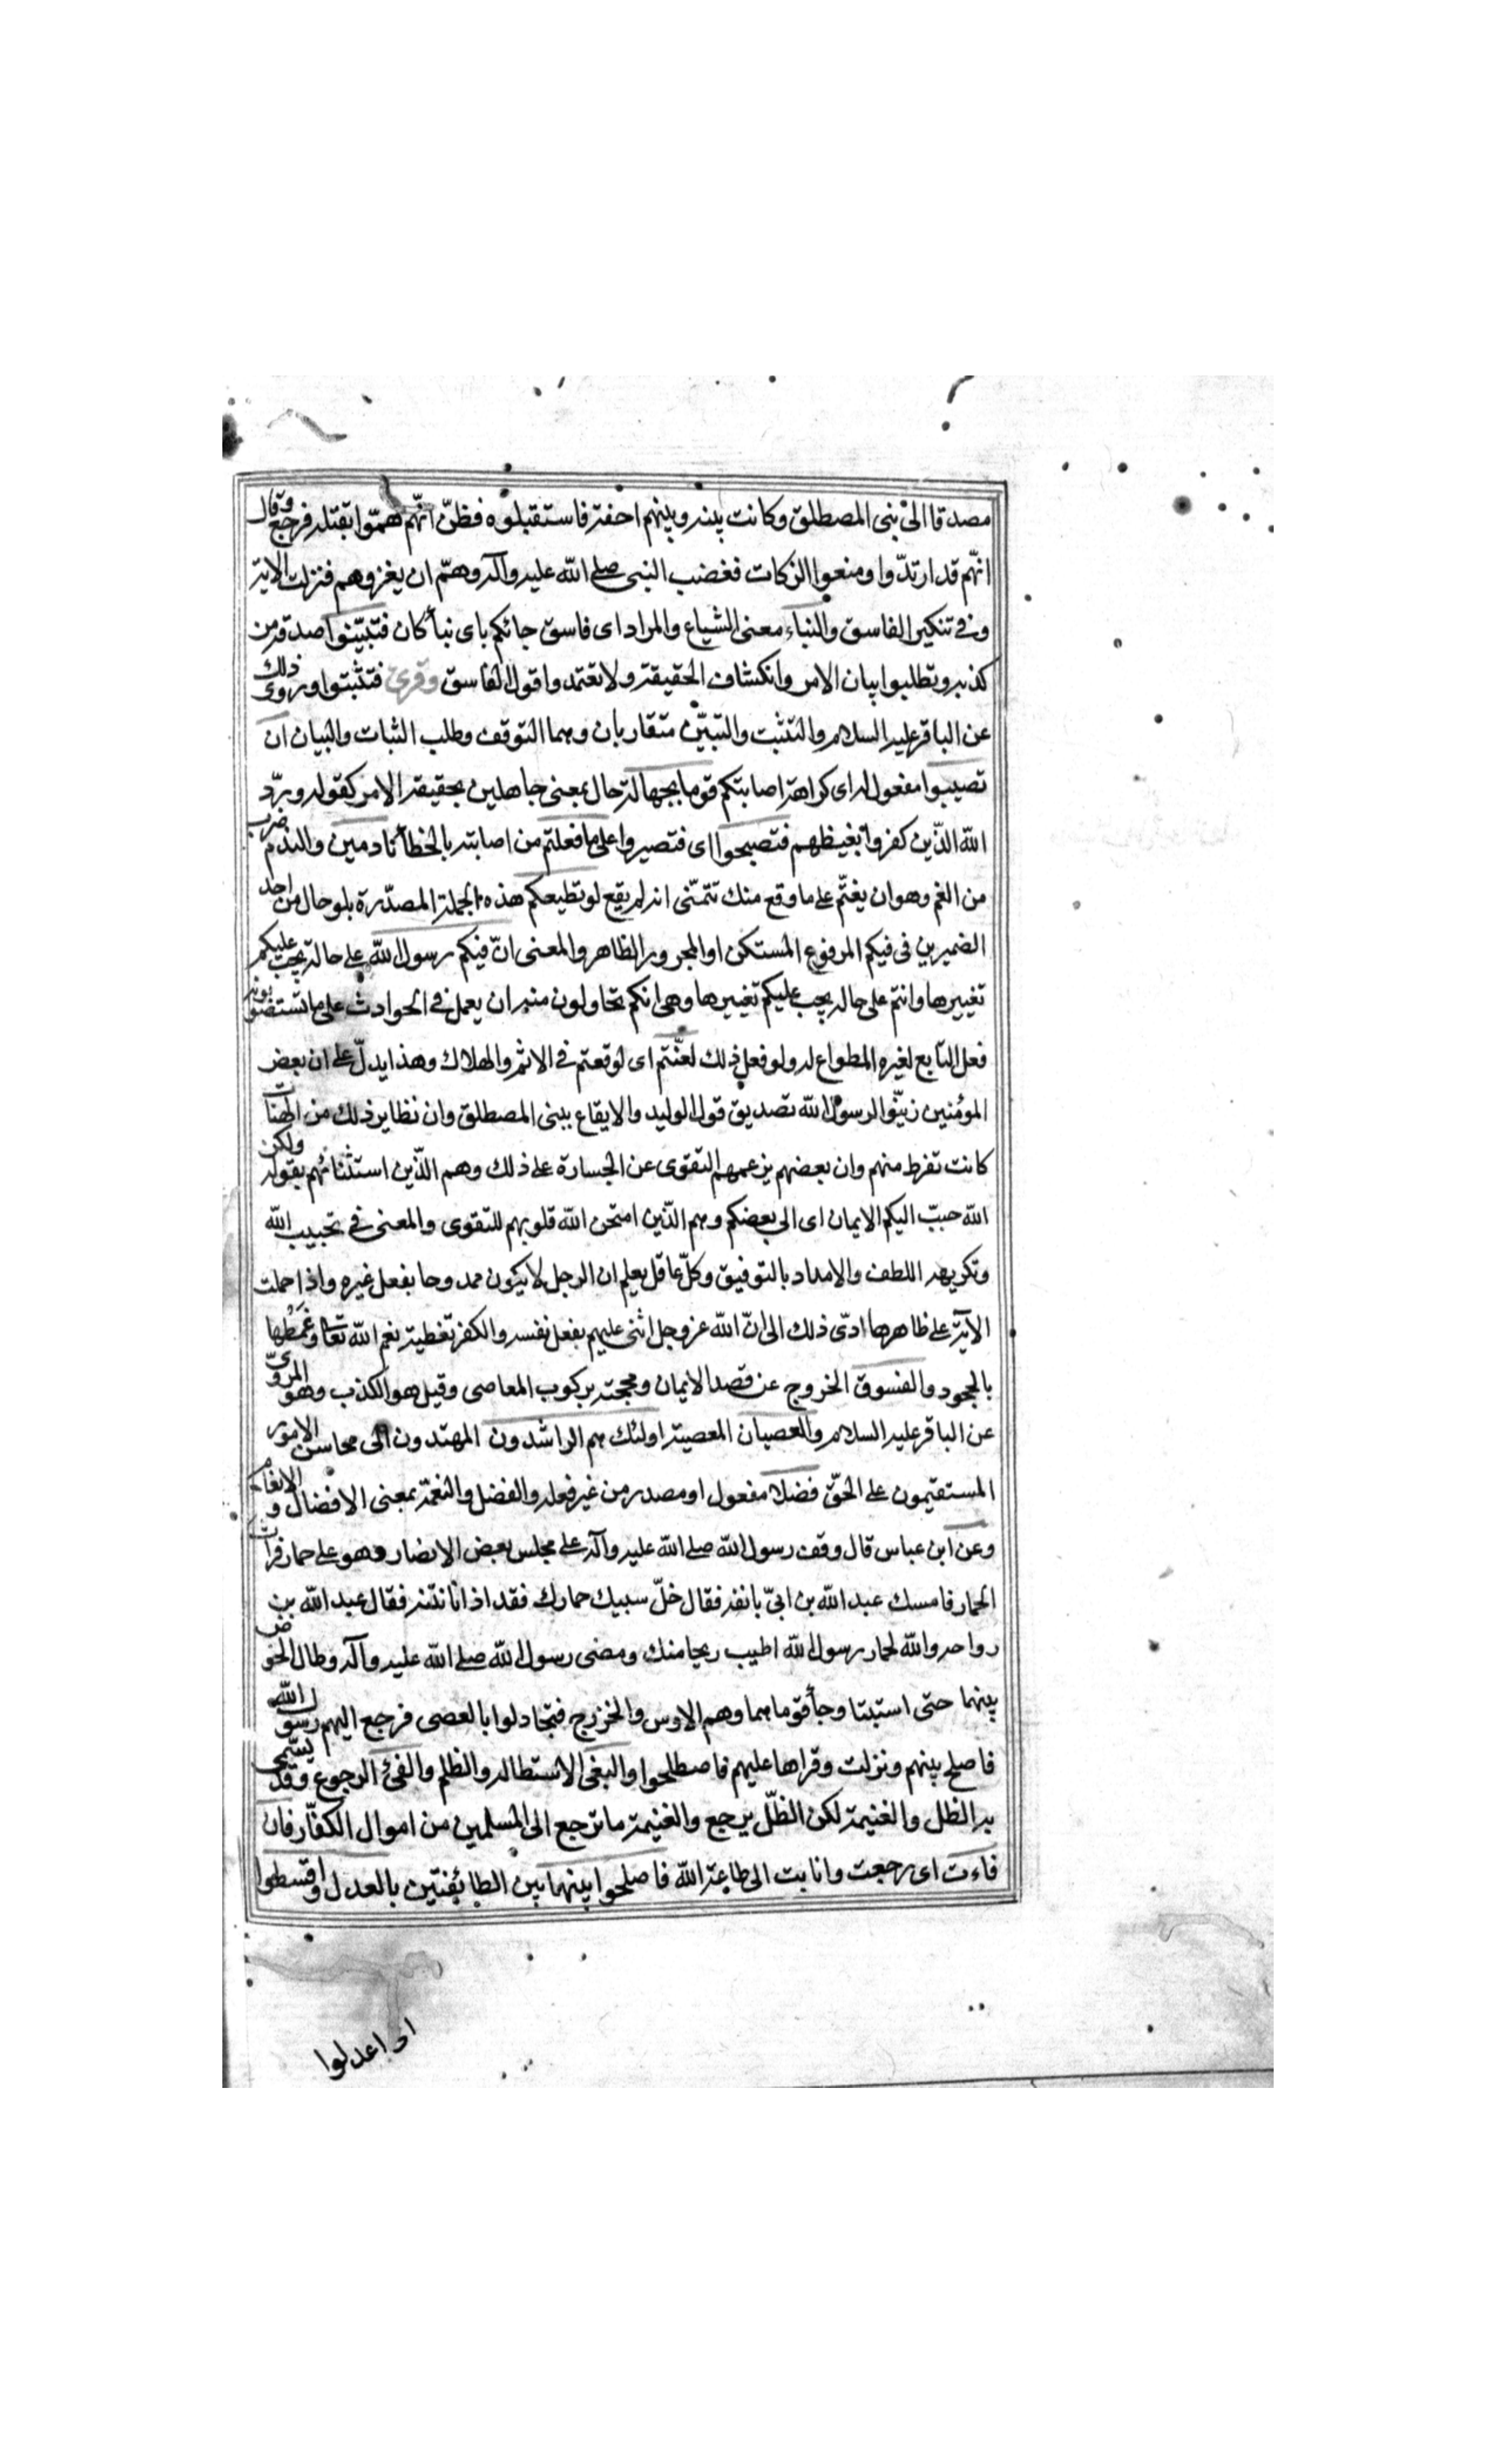 مصدقا الی بنی المصطلق وکانت بینه وبینهم احنة فاستقبلوه فظنّ انّهم همّوا بقتله فرجع وقال
انّهم قد ارتدّوا ومنعوا الزکات فغضب النبی صلی الله علیه وآله وهمّ ان یغزوهم فنزلت الایة
وفی تنکیر الفاسق والنباء معنی الشیاع والمراد ای فاسق جائکم بای نبأ کان فتبیّنوا صدقه من
کذبه وتطلبوا بیان الامر وانکشاف الحقیقة ولا تعتمدوا قول الفاسق وقرئ فتثبتوا وروی ذلك
عن الباقر علیه السلام والتثبت والتبیّن متقاربان وهما التوقف وطلب الثبات والبیان ان
تصیبوا مفعول له ای کراهة اصابتکم قوما بجهالة حال بمعنی جاهلین بحقیقة الامر کقوله وردّ
الله الذّین کفروا بغیظهم فتصبحوا ای فتصیروا علی ما فعلتم من اصابته بالخطأ نادمین والندم ضرب
من الغم وهو ان یغتمّ علی ما وقع منك تتمنّی انه لم یقع لو تطیعکم هذه الجملة المصدّرة بلو حال من احد
الضمیرین فی فیکم المرفوع المستکن او المجرور الظاهر والمعنی انّ فیکم رسول الله علی حالة یجب علیکم
تغییرها وانتم علی حاله یجب علیکم تغییرها وهی انکم تحاولون منه ان یعمل فی الحوادث علی ما تستصوبونه
فعل التابع لغیره المطواع له ولو فعل ذلك لعنّتم ای لوقعتم فی الاثم والهلاك وهذا یدلّ علی ان بعض
المؤمنین زیّنوا لرسول الله تصدیق قول الولید والایقاع ببنی المصطلق وان نظایر ذلك من الهنات
کانت تفرط منهم وان بعضهم یزعمهم التقوی عن الجسارة علی ذلك وهم الذّین استثنائهم بقوله ولکن
الله حبّب الیکم الایمان ای الی بعضکم وهم الذّین امتحن الله قلوبهم للتقوی والمعنی فی تحبیب الله
وتکریهه اللطف والامداد بالتوفیق وکلّ عاقل یعلم ان الرجل لا یکون ممدوحا بفعل غیره واذا حملت
الآیة علی ظاهرها ادّی ذلك الی انّ الله عز وجل اثنی علیهم بفعل نفسه والکفر تغطیة نعم الله تعا وغمطها
بالجحود والفسوق الخروج عن قصد الایمان ومحجته برکوب المعاصی وقیل هو الکذب وهو المرویّ
عن الباقر علیه السلام والعصیان المعصیة اولئك هم الراشدون المهتدون الی محاسن الامور
المستقیمون علی الحقّ فضلا مفعول او مصدر من غیر فعله والفضل والنعمة بمعنی الافضال والانعام
وعن ابن عباس قال وقف رسول الله صلی الله علیه وآله علی مجلس بعض الانصار وهو علی حمار فراث
الحمار فامسك عبد الله بن ابیّ بانفه فقال خلّ سبیك حمارك فقد اذانا نتنه فقال عبد الله بن
رواحه والله لحمار رسول الله اطیب ریحا منك ومضی رسول الله صلی الله علیه وآله وطال الخوض
بینهما حتی استبتا وجأ قوماهما وهم الاوس والخزرج فتجادلوا بالعصی فرجع الیهم رسول الله
فاصلح بینهم ونزلت وقراها علیهم فاصطلحوا والبغی الاستطاله والظلم والفئ الرجوع وقد یسمّی
به الظل والغنیمة لکن الظلّ یرجع والغنیمة ما ترجع الی المسلمین من اموال الکفّار فان
فاءت ای رجعت وانابت الی طاعة الله فاصلحوا بینهما بین الطایٔفتین بالعدل واقسطوا
ای اعدلوا